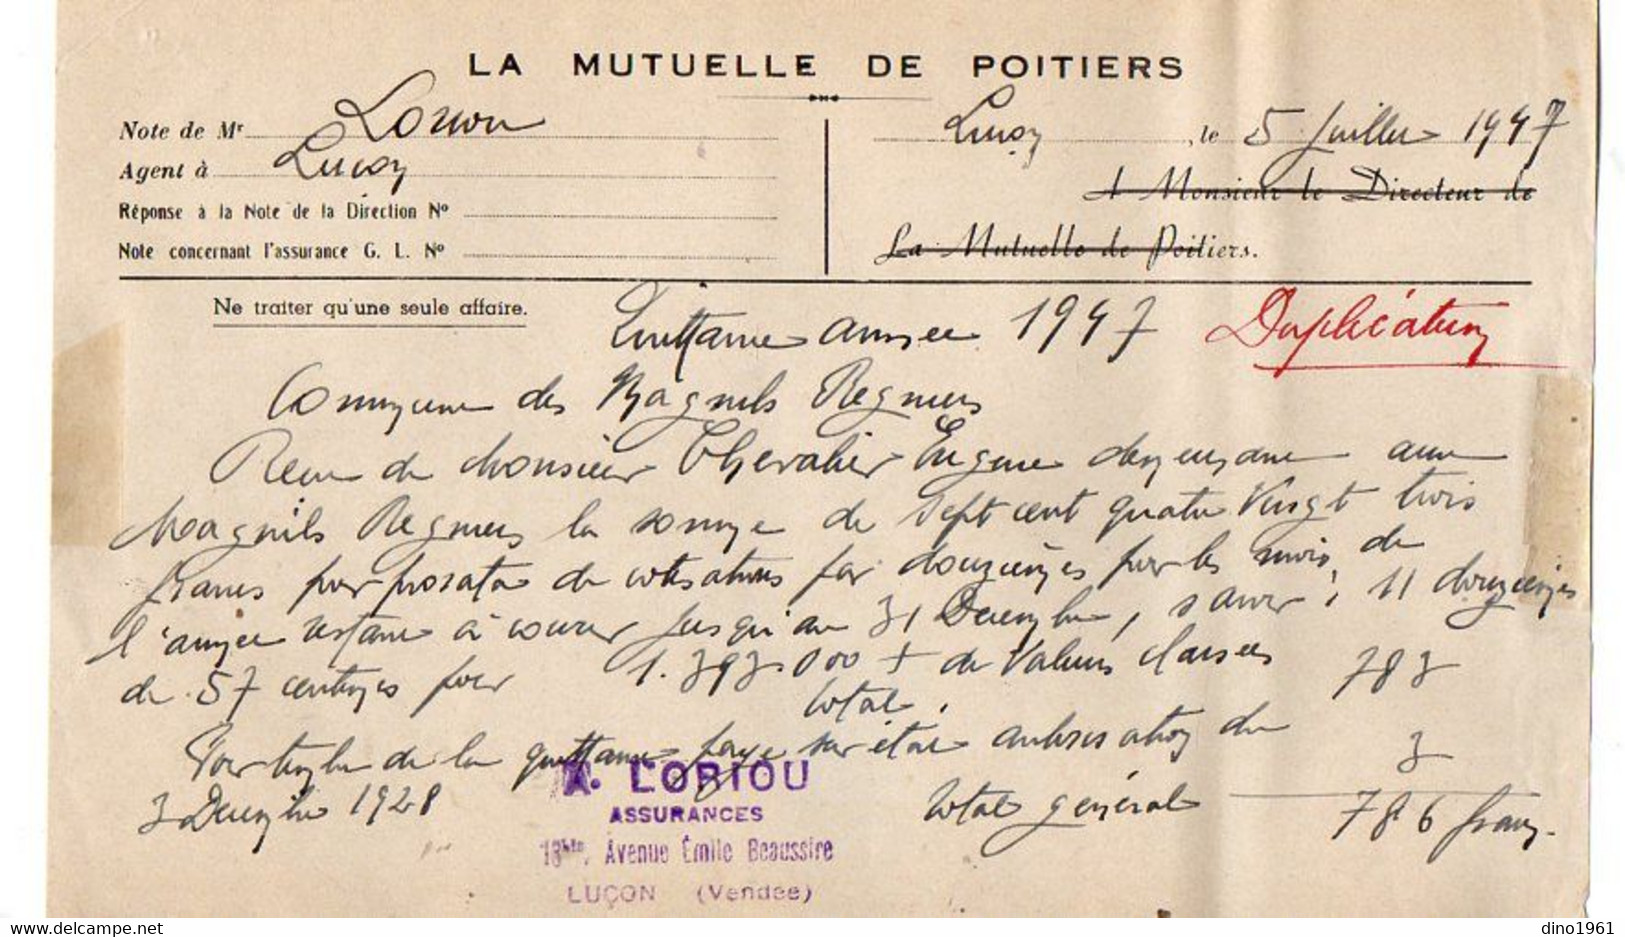 LA MUTUELLE DE POITIERS
Note de Mr Loriou
Agent à Luçon
Réponse à la Note de la Direction No
Note concernant l'assurance G. L. No
Luçon, le 5 Juillet 1947
A Monsieur le Directeur de
La Mutuelle de Poitiers.
Ne traiter qu'une seule affaire.
Quittance année 1947 Duplicatum
Commune des Magnils Regniers
Recu de Monsieur Chevalier Eugene demeurant aux
Magnils Regniers la somme de Sept cent quatre Vingt trois
francs pour prorata de cotisations par douzièmes pour les mois de
l'année restant à courir jusqu'au 31 Decembre, savoir : 11 douzièmes
de 57 centimes pour 1.393.000 + de Valeurs classées 783
total.
Pour timbre de la quittance payé sur état autorisation du 3
3 Decembre 1928
total général 786 francs.
A. LORIOU
ASSURANCES
18bis, Avenue Émile Beaussire
LUÇON (Vendée)
dino1961
www.delcampe.net